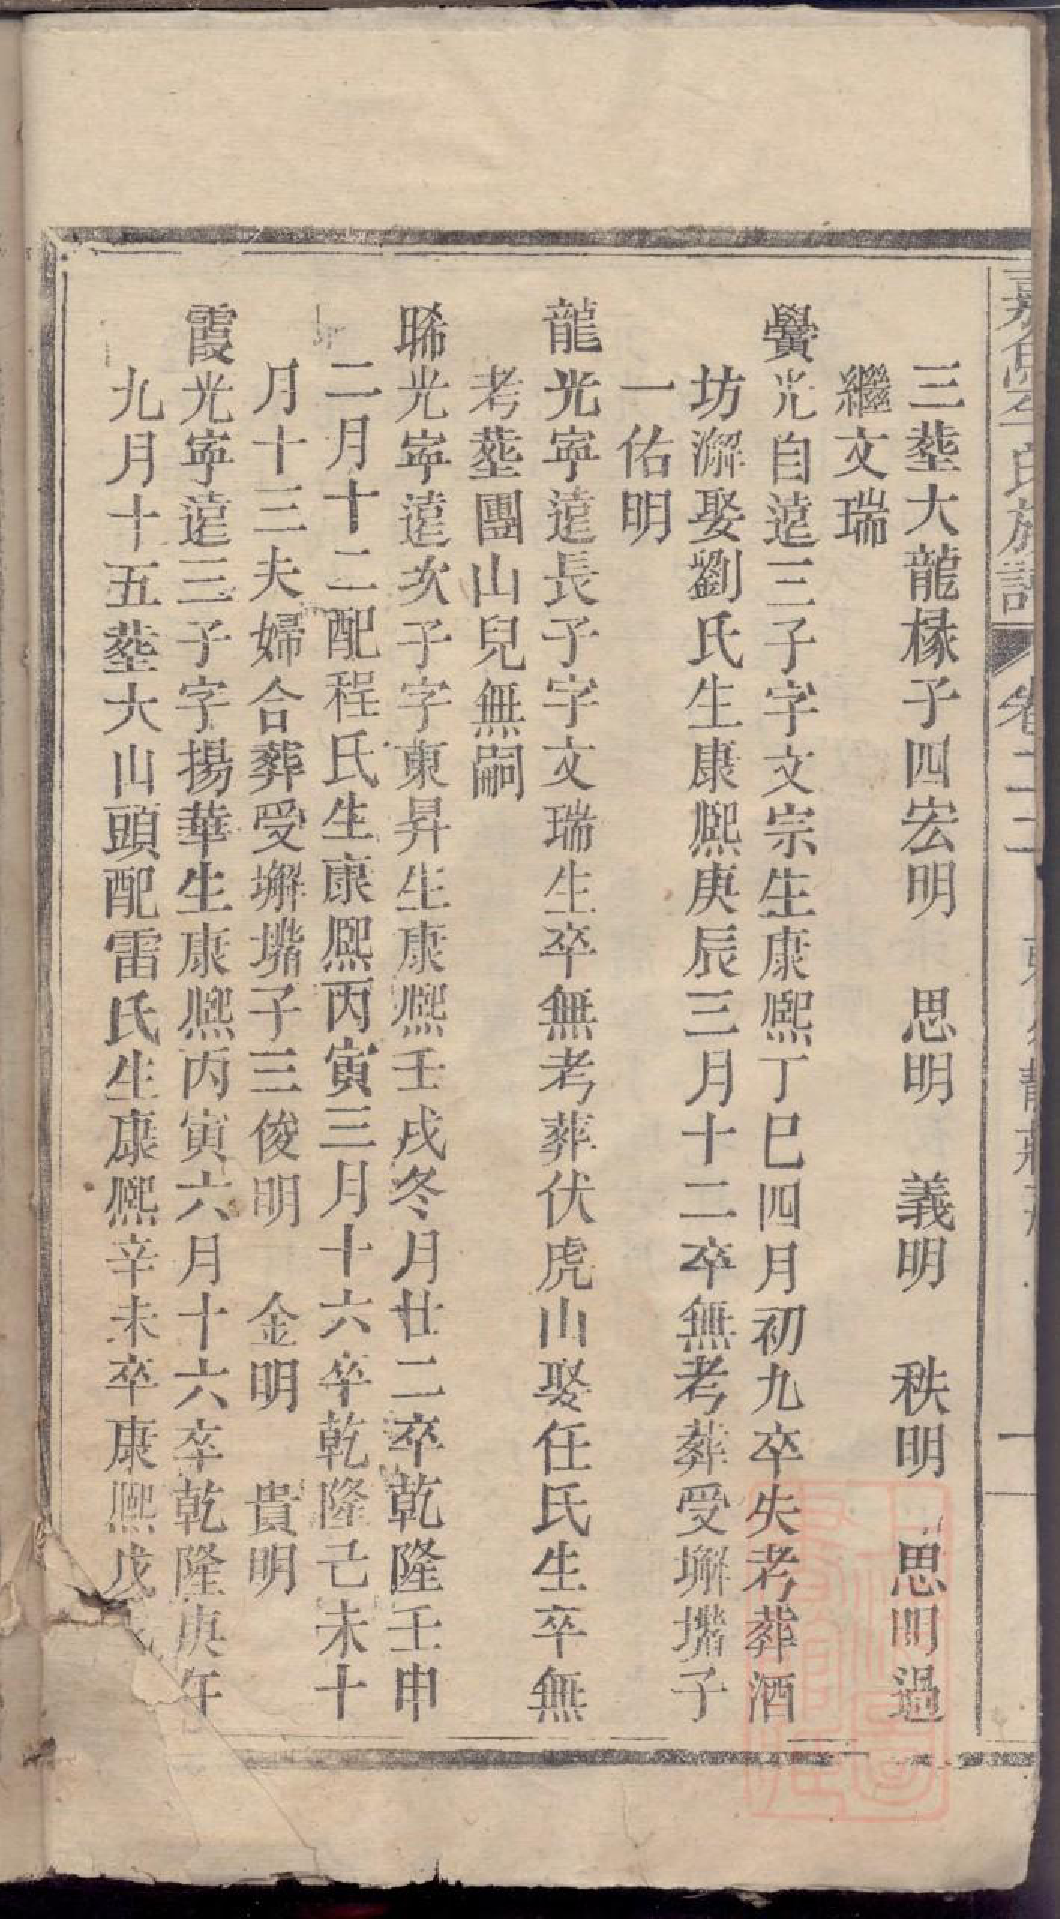 三塟大龍椽子四宏明 思明 義明 秩明 思明過
繼文瑞
黌光自遠三子字文宗生康熙丁巳四月初九卒失考葬酒
坊澥娶劉氏生康熙庚辰三月十二卒無考葬受塀㙰子
一佑明
龍光寧遠長子字文瑞生卒無考葬伏虎山娶任氏生卒無
考塟團山兒無嗣
晞光寧遠次子字東昇生康熙壬戌冬月廿二卒乾隆壬申
二月十二配程氏生康熙丙寅三月十六卒乾隆己未十
月十三夫婦合葬受塀㙰子三俊明 金明 貴明
霞光寧遠三子字揚華生康熙丙寅六月十六卒乾隆庚午
九月十五塟大山頭配雷氏生康熙辛未卒康熙戊